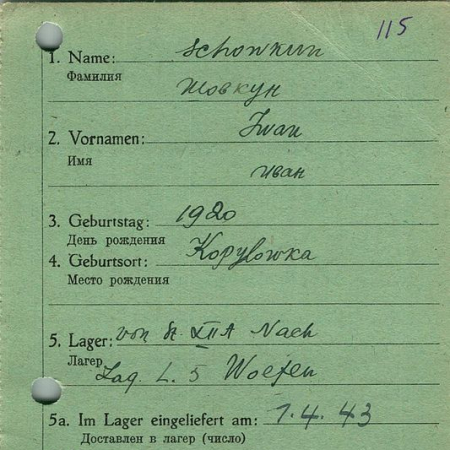 115
1. Name: Schowkun
Фамилия
Шовкун
2. Vornamen: Iwan
Имя
иван
3. Geburtstag: 1920
День рождения
4. Geburtsort: Kopylowka
Место рождения
5. Lager: von St. XII A Nach
Лагерь
Lag. L. 5 Woefen
5a. Im Lager eingeliefert am: 1.4.43
Доставлен в лагерь (число)